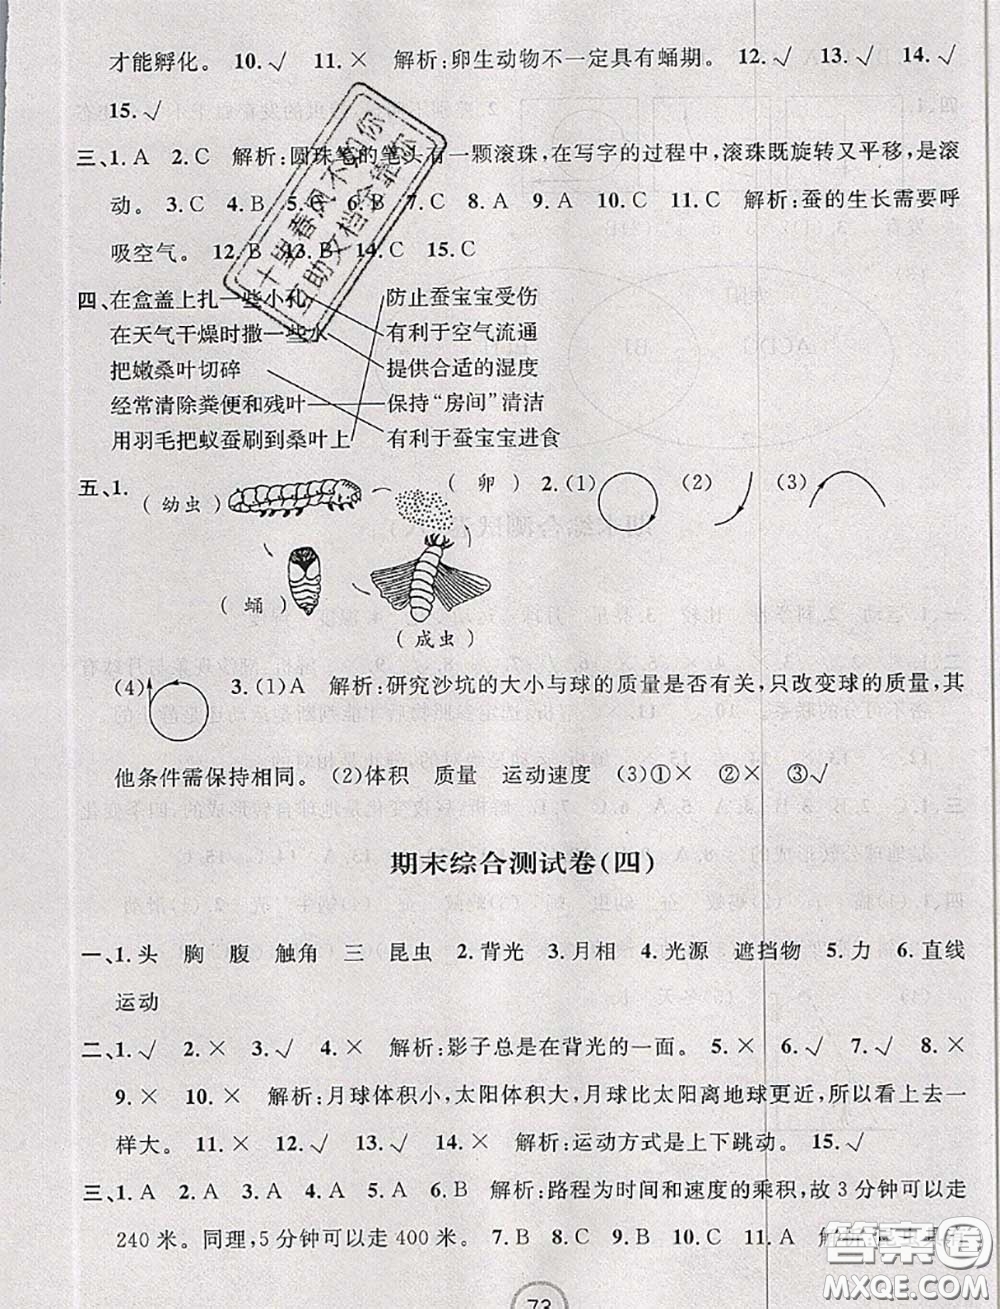 才能孵化。 10.√ 11.× 解析:卵生动物不一定具有蛹期。 12.√ 13.√ 14.√
15.√
三、1.A 2.C 解析:圆珠笔的笔头有一颗滚珠,在写字的过程中,滚珠既旋转又平移,是滚
动。 3.C 4.B 5.B 6.B 7.C 8.A 9.A 10.C 11.C 解析:蚕的生长需要呼
吸空气。 12.B 13.B 14.C 15.C
四、在盒盖上扎一些小孔 防止蚕宝宝受伤
在天气干燥时撒一些水 有利于空气流通
把嫩桑叶切碎 提供合适的湿度
经常清除粪便和残叶 保持“房间”清洁
用羽毛把蚁蚕刷到桑叶上 有利于蚕宝宝进食
五、1. (幼虫) (卵) 2.(1) (2) (3)
(蛹)
(成虫)
(4) 3.(1)A 解析:研究沙坑的大小与球的质量是否有关,只改变球的质量,其
他条件需保持相同。 (2)体积 质量 运动速度 (3)①× ②× ③√
期末综合测试卷(四)
一、1.头 胸 腹 触角 三 昆虫 2.背光 3.月相 4.光源 遮挡物 5.力 6.直线
运动
二、1.√ 2.× 3.√ 4.× 解析:影子总是在背光的一面。 5.× 6.√ 7.√ 8.×
9.× 10.× 解析:月球体积小,太阳体积大,月球比太阳离地球更近,所以看上去一
样大。 11.× 12.√ 13.√ 14.× 解析:运动方式是上下跳动。 15.√
三、1.A 2.A 3.A 4.A 5.A 6.B 解析:路程为时间和速度的乘积,故3分钟可以走
240米。同理,5分钟可以走400米。 7.B 8.B 9.C 10.C 11.A 解析
73
十里春风不如你
云助文档今靠你
答案圈
MXQE.COM